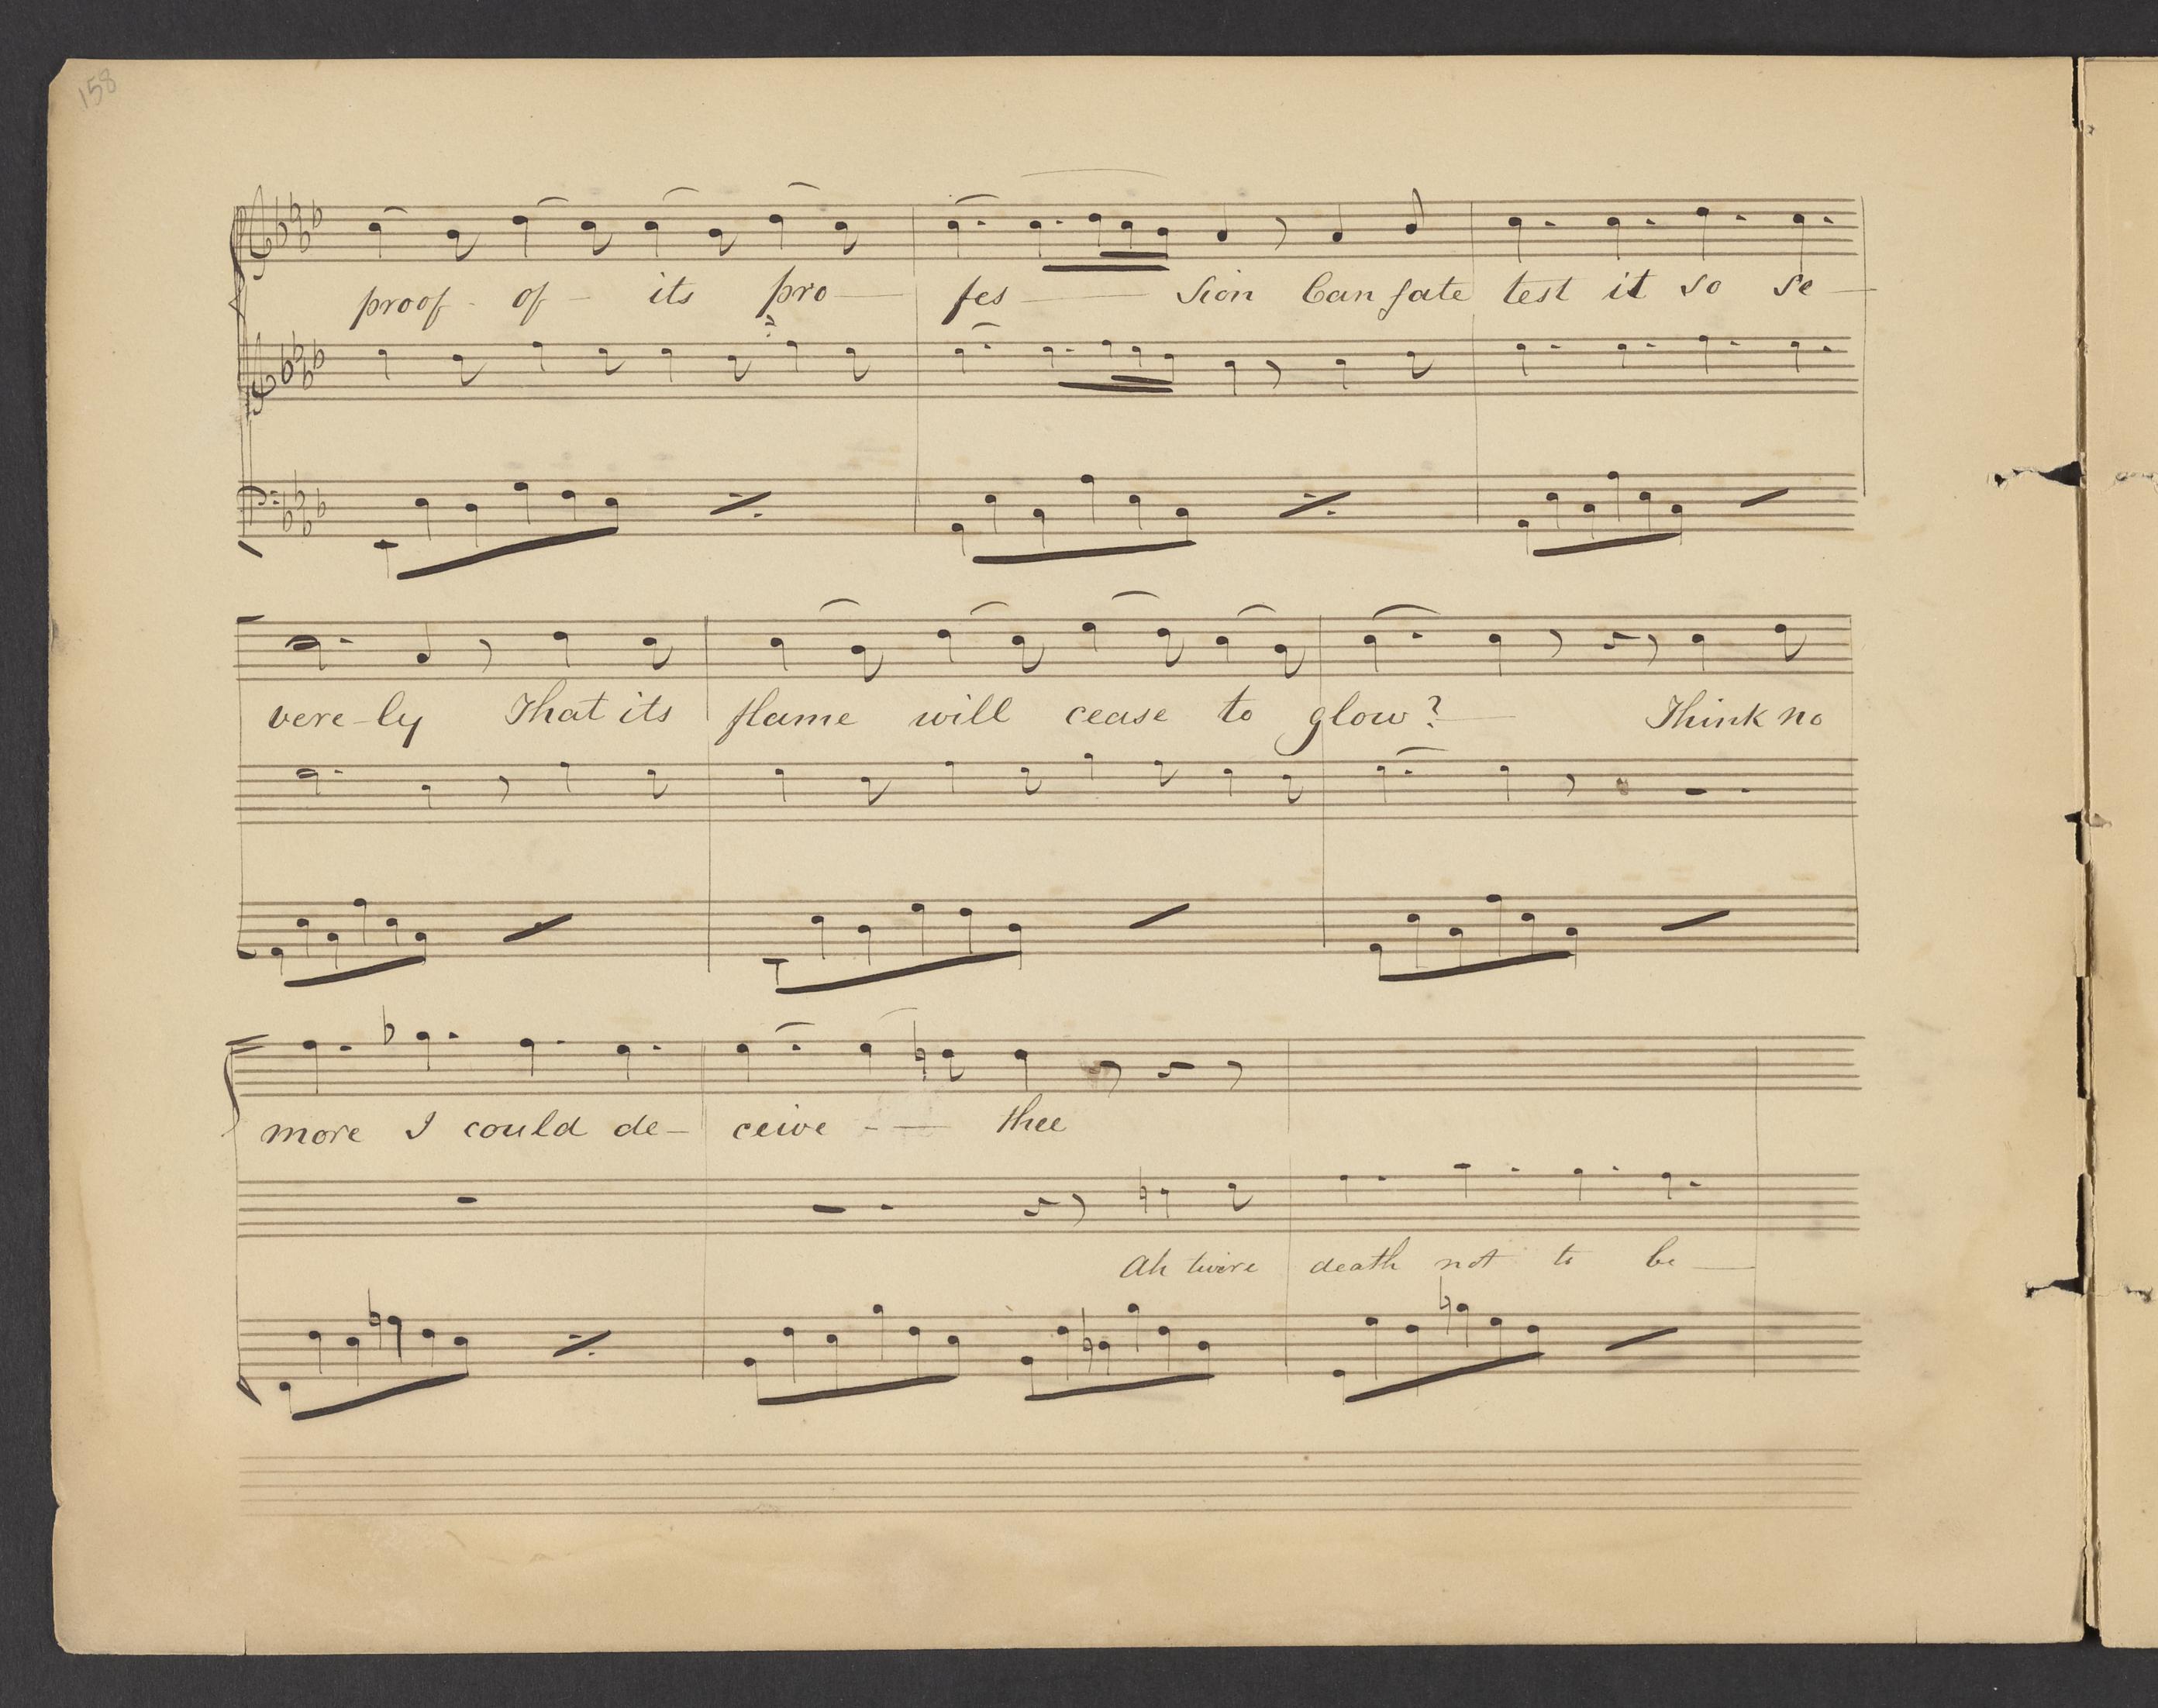 158
proof - of - its pro — fes — sion Can fate test it so se —
vere - ly That its flame will cease to glow? — Think no
more I could de — ceive - — thee
Ah twere death not to be —